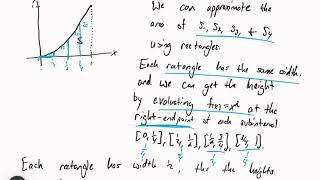 We can approximate the
area of S₁, S₂, S₃, & S₄
using rectangles.
Each rectangle has the same width,
and we can get the height
by evaluating f(x)=x² at the
right-endpoint of each subinterval
[0,¼], [¼,½], [½,¾], [¾,1].
Each rectangle has width ¼, the the heights
S
x